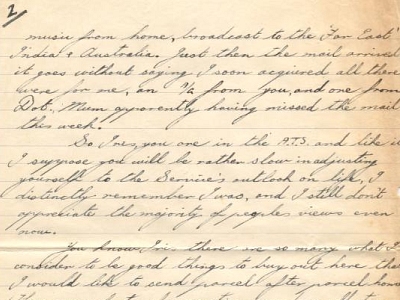 2/
music from home, broadcast to the 'Far East'
India & Australia. Just then the mail arrived
it goes without saying I soon acquired all there
were for me, an A/L from you, and one from
Dot, Mum apparently having missed the mail
this week.
So Iris, you are in the A.T.S. and like it
I suppose you will be rather slow in adjusting
yourself to the Service's outlook on life, I
distinctly remember I was, and I still don't
appreciate the majority of peoples views even
now.
You know, Iris, there are so many what I
consider to be good things to buy out here that
I would like to send parcel after parcel home